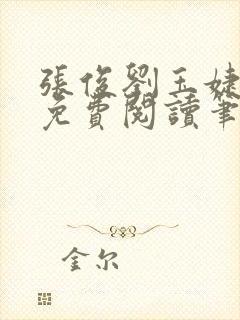 張俊劉玉婕
免費閱讀筆
金尔